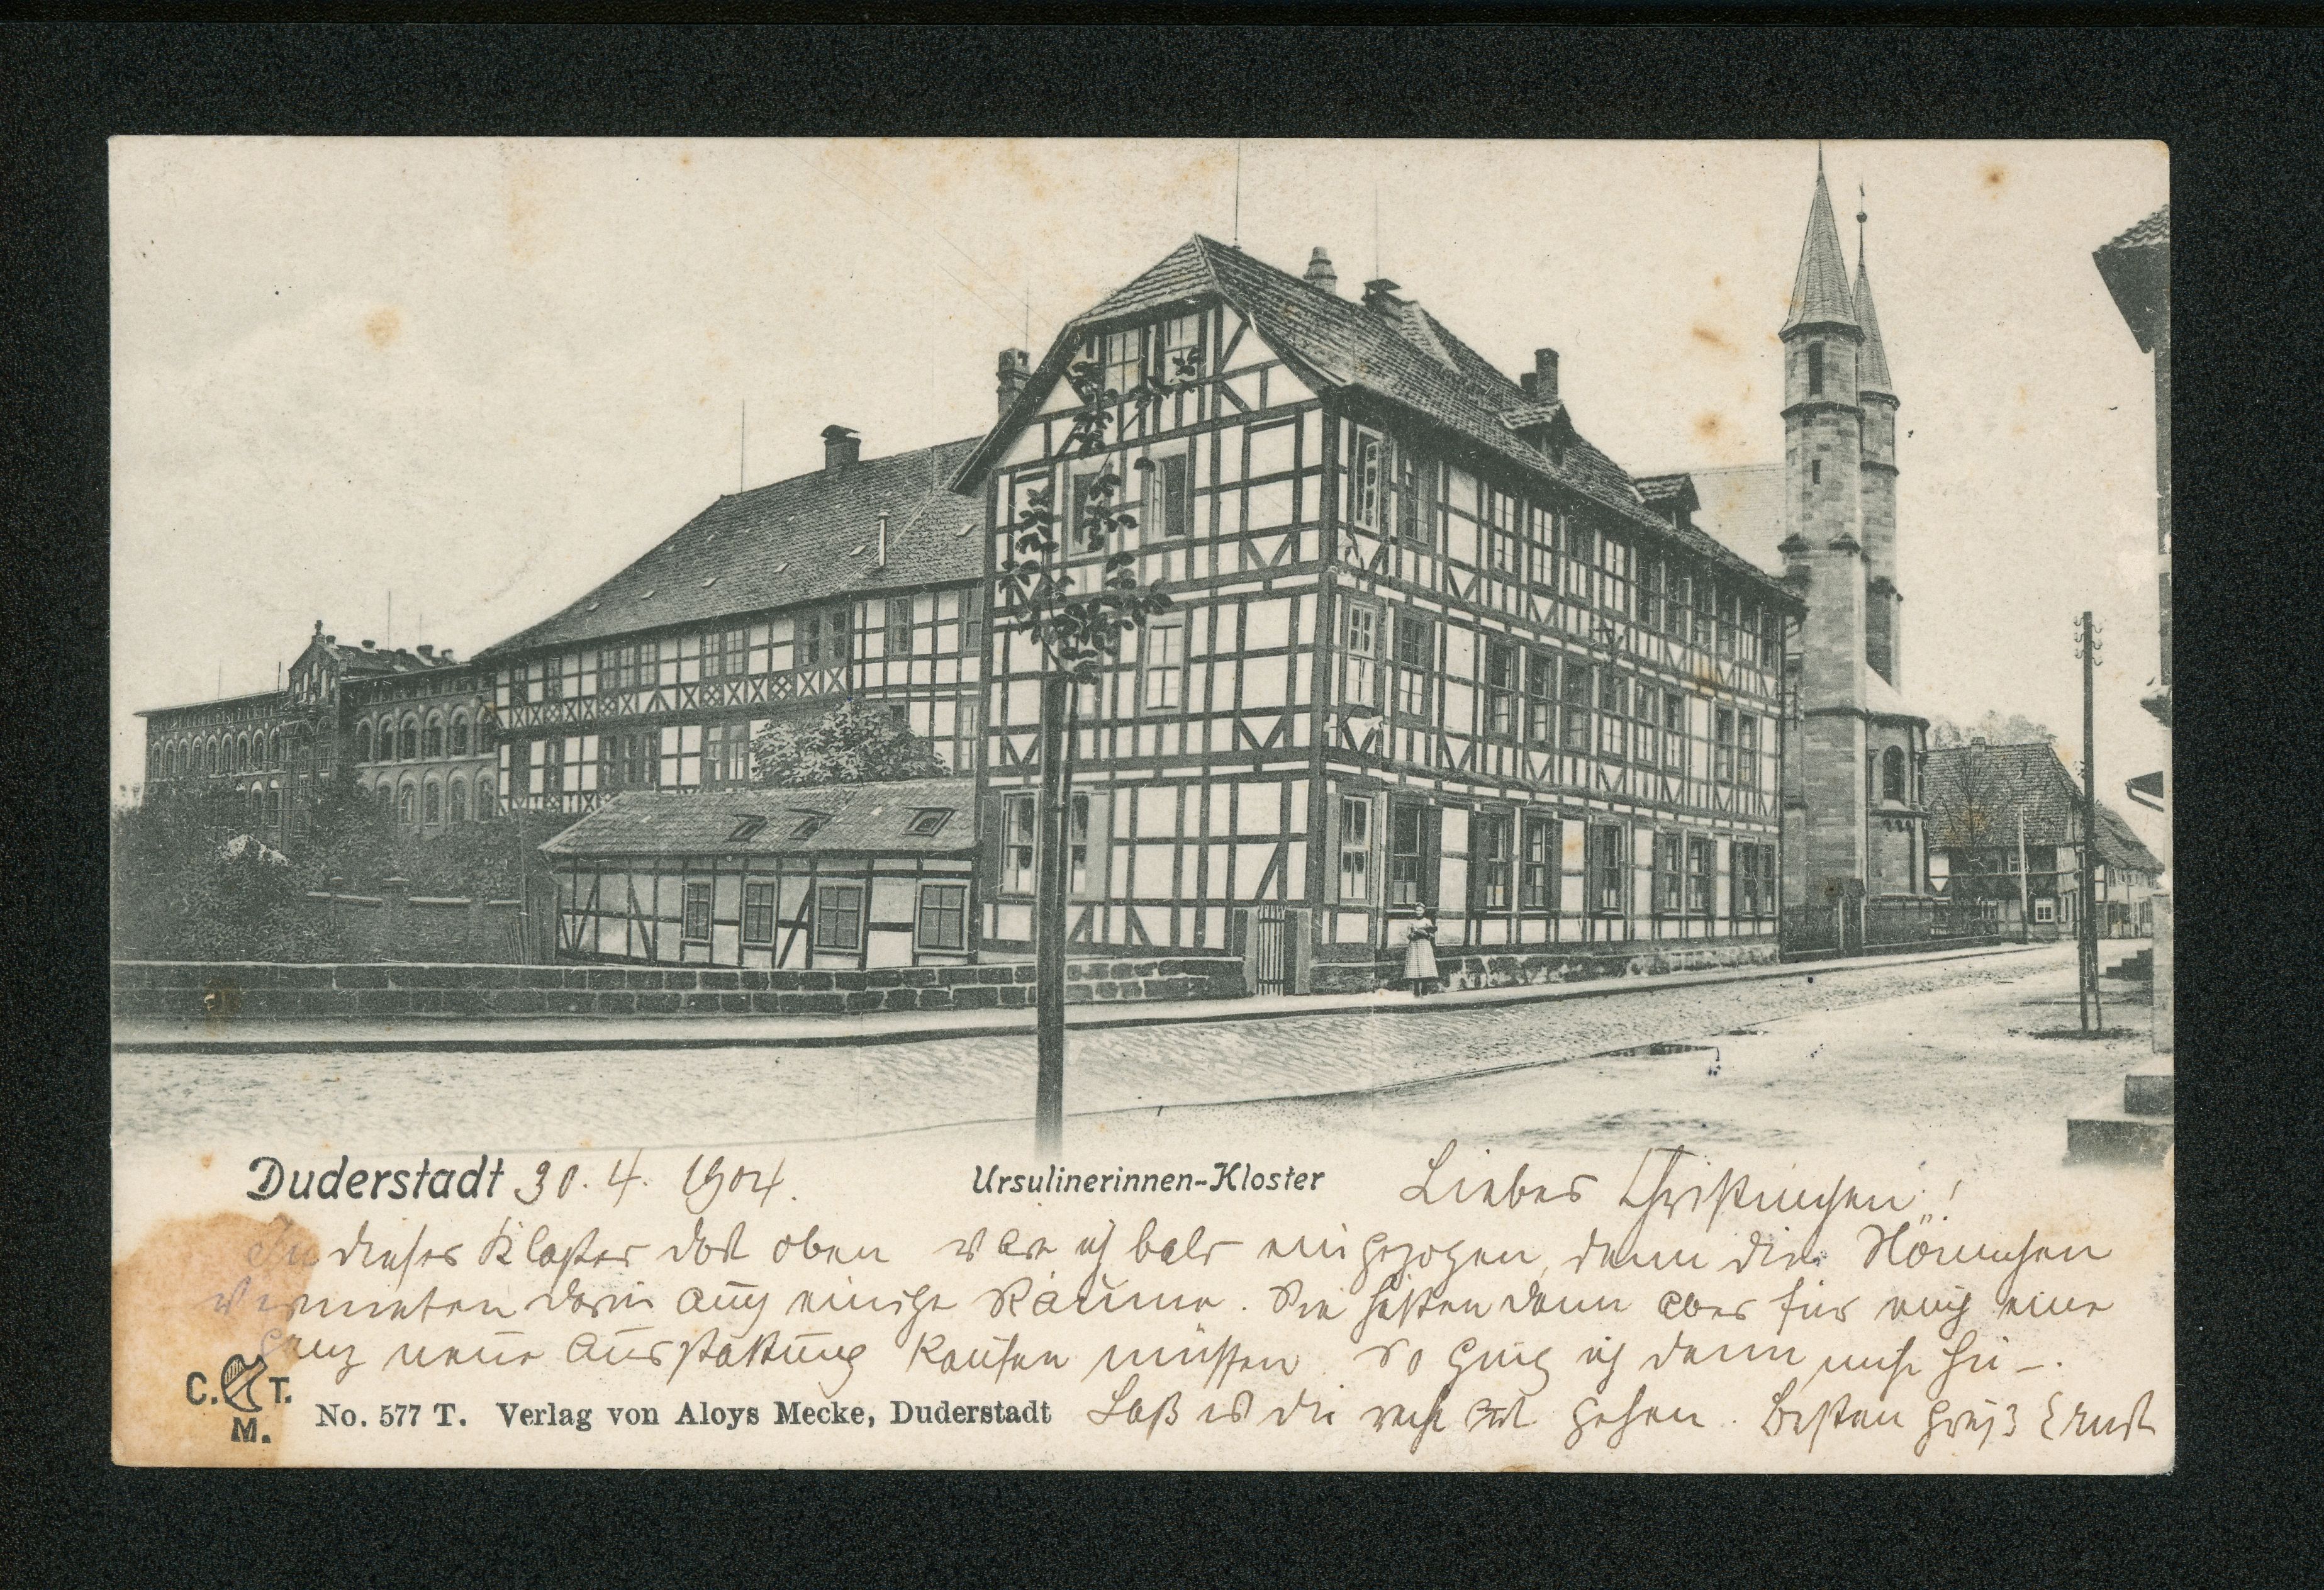 Duderstadt 30. 4. 1904.
Ursulinerinnen-Kloster
Liebes Christinchen!
In dieses Kloster dort oben wäre ich bald eingezogen, denn die Nönnchen
vermieten darin auch einige Räume. Sie hätten dann aber für mich eine
ganz neue Ausstattung kaufen müssen. So ging ich denn nicht hin –.
C. T.
M.
No. 577 T. Verlag von Aloys Mecke, Duderstadt
Laß es dir recht gut gehen. Besten Gruß Ernst